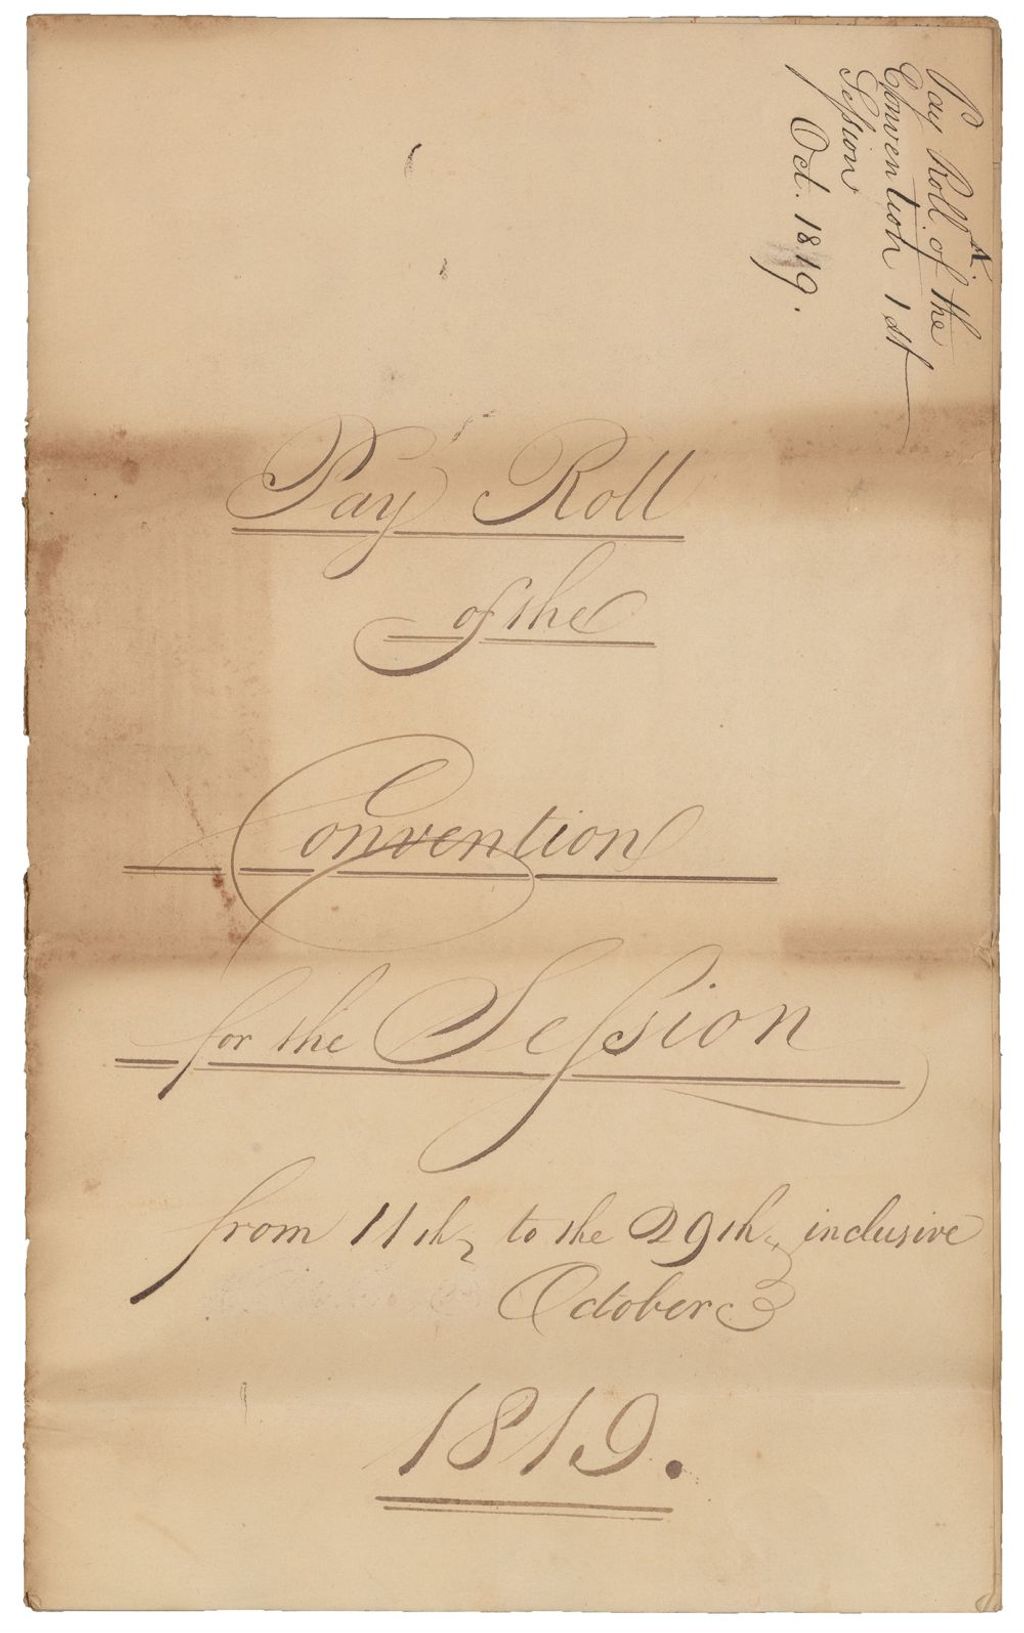 Pay Roll of the
Convention 1st
Session
Oct. 1819.
Pay Roll
of the
Convention
for the Session
from 11th to the 29th inclusive
October
1819.